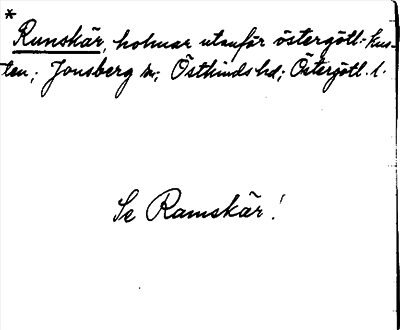 *
Runskär, holmar utanför östergötl. kus-
ten; Jonsberg sn; Östkinds hd; Östergötl. l.
Se Ramskär!